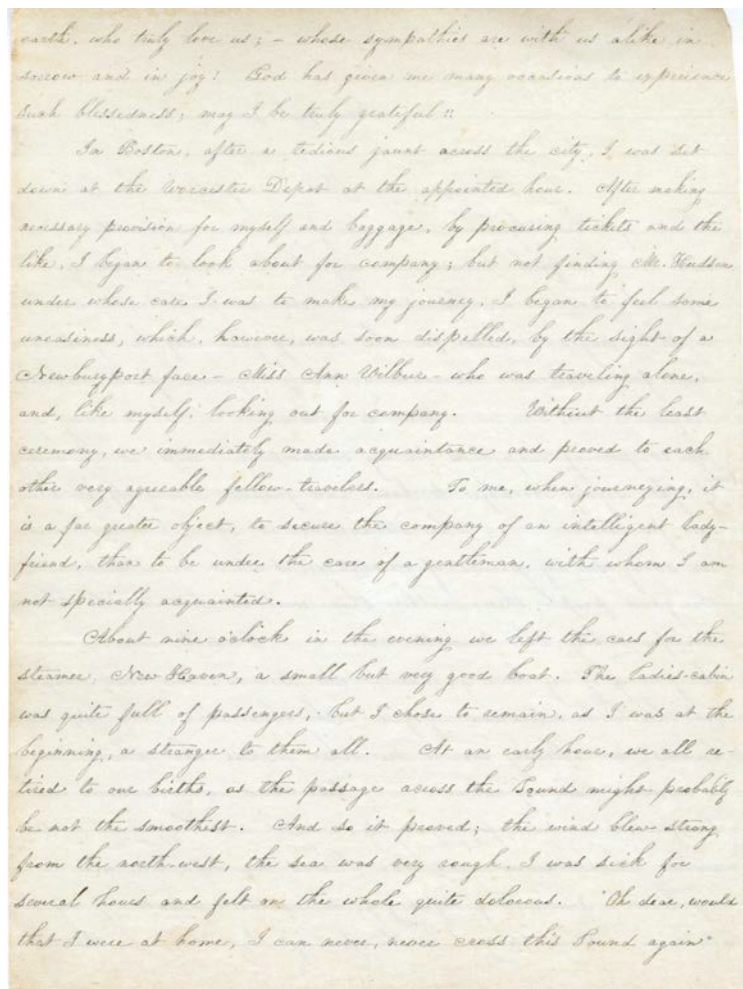 earth, who truly love us; – whose sympathies are with us alike in
sorrow and in joy! God has given me many occasions to experience
such blessedness; may I be truly grateful!!
In Boston, after a tedious jaunt across the city, I was set
down at the Worcester Depot at the appointed hour. After making
necessary provision for myself and baggage, by procuring tickets and the
like, I began to look about for company; but not finding Mr. Hudson
under whose care I was to make my journey, I began to feel some
uneasiness, which, however, was soon dispelled, by the sight of a
Newburyport face – Miss Ann Wilbur – who was traveling alone,
and, like myself, looking out for company. Without the least
ceremony, we immediately made acquaintance and proved to each
other very agreeable fellow-travelers. To me, when journeying, it
is a far greater object, to secure the company of an intelligent lady-
friend, than to be under the care of a gentleman, with whom I am
not specially acquainted.
About nine o'clock in the evening we left the cars for the
steamer, New Haven, a small but very good boat. The ladies-cabin
was quite full of passengers, but I chose to remain, as I was at the
beginning, a stranger to them all. At an early hour, we all re-
tired to our births, as the passage across the Sound might probably
be not the smoothest. And so it proved; the wind blew strong
from the north-west, the sea was very rough, I was sick for
several hours and felt on the whole quite dolorous. "Oh dear, would
that I were at home, I can never, never cross this Sound again"